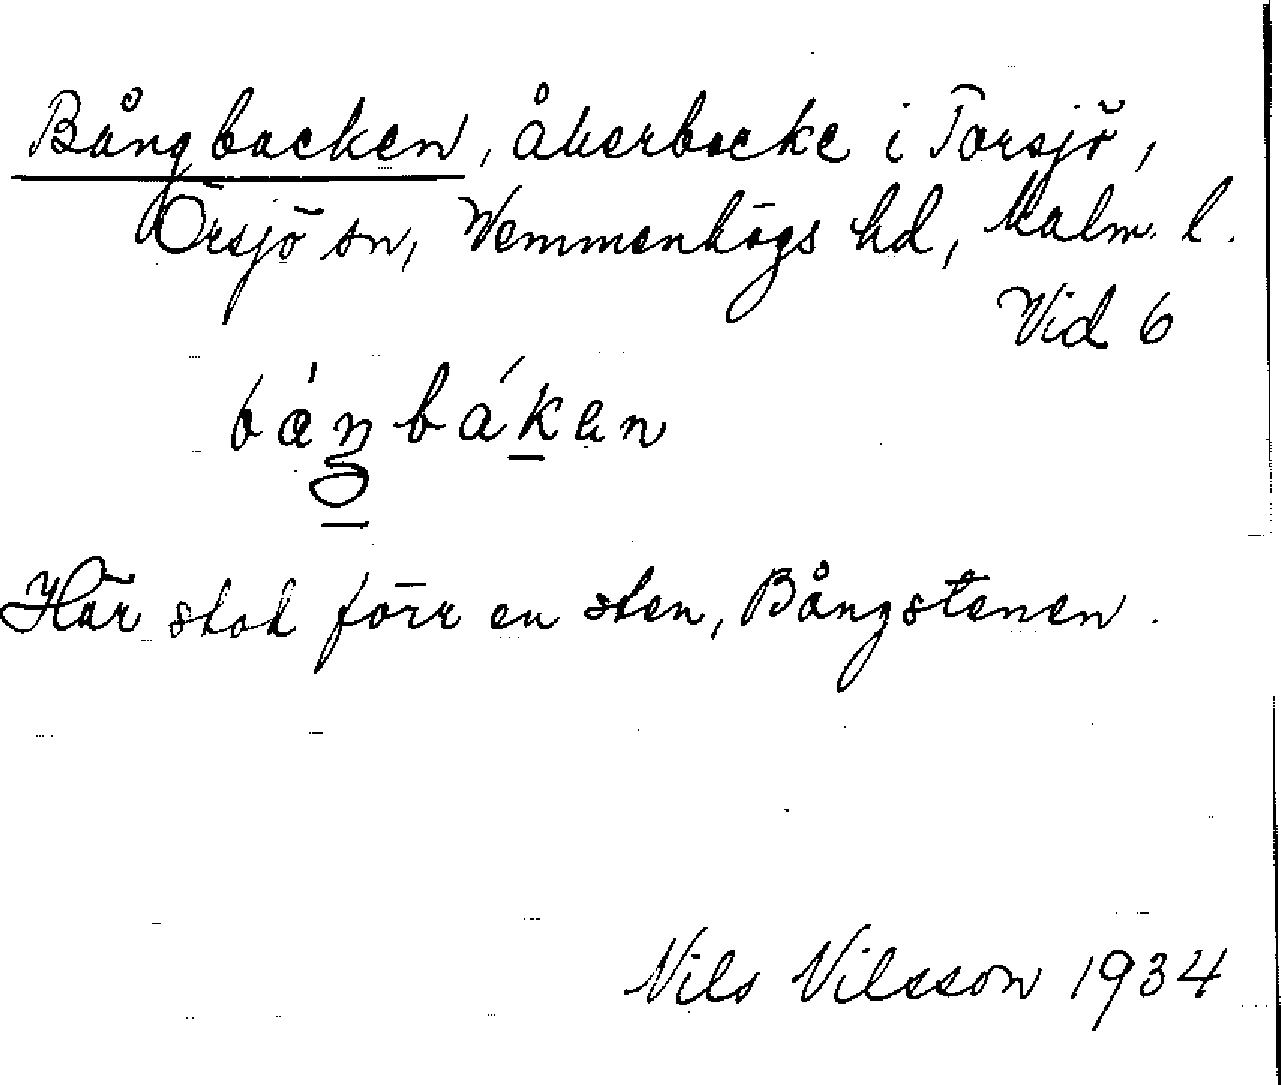 Bångbacken, åkerbacke i Torsjö,
Örsjö sn, Vemmenhögs hd, Malm. l.
Vid 6
Här stod förr en sten, Bångstenen.
Nils Nilsson 1934